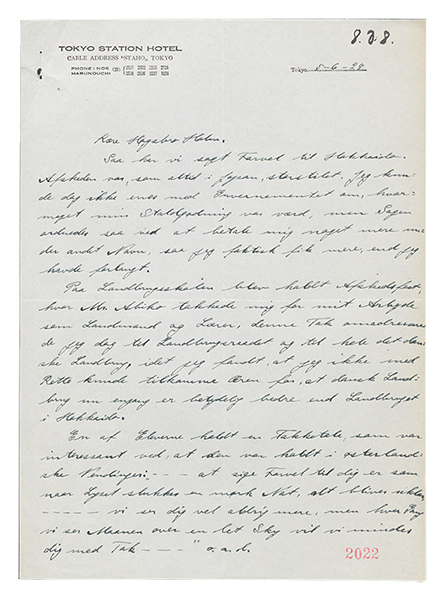 8.J.8.
TOKYO STATION HOTEL
CABLE ADDRESS "STAHO", TOKYO
PHONE : NOS.
MARUNOUCHI (23)
Tokyo, 8-6-28
Kære Høgsbro Holm.
Saa har vi sagt Farvel til Hokkaido.
Afskeden var, som altid i Japan, storstilet. Jeg kun-
de dog ikke enes med Guvernementet om, hvor-
meget min Staldgødning var værd, men Sagen
ordnedes saa ved at betale mig noget mere un-
der andet Navn, saa jeg faktisk fik mere, end jeg
havde forlangt.
Paa Landbrugsskolen blev holdt Afskedsfest,
hvor Mr. Abiko takkede mig for mit Arbejde
som Landmand og Lærer, denne Tak omadressere-
de jeg dog til Landbrugsraadet og til hele det dan-
ske Landbrug, idet jeg fandt, at jeg ikke med
Rette kunde tilkomme Æren for, at dansk Land-
brug nu engang er betydelig bedre end Landbruget
i Hokkaido.
En af Eleverne holdt en Takketale, som var
interessant ved, at den var holdt i østerland-
ske Vendinger: - - - - at sige Farvel til dig er som
naar Lyset slukkes en mørk Nat, alt bliver
- - - - - vi ser dig vel aldrig mere, men hver Gang
vi ser Maanen over en let Sky vil vi mindes
dig med Tak - - - - " o.s.v.
2022